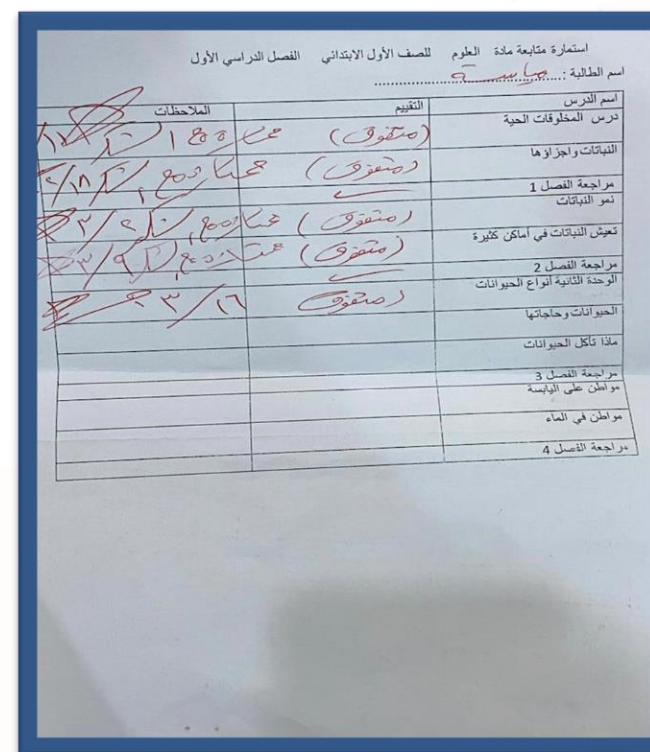 استمارة متابعة مادة العلوم للصف الأول الابتدائي الفصل الدراسي الأول
اسم الطالبة :
اسم الدرس التقييم الملاحظات
درس المخلوقات الحية (متفوق) ممتازة
النباتات واجزاؤها (متفوق) ممتازة ١٨/٢
مراجعة الفصل 1
نمر النباتات (متفوق) ممتازة ٢/٣
تعيش النباتات في أماكن كثيرة (متفوق) ممتازة ٩/٣
مراجعة الفصل 2
الوحدة الثانية أنواع الحيوانات (متفوق ١٦/٣
الحيوانات وحاجاتها
ماذا تأكل الحيوانات
مراجعة الفصل 3
مواطن على اليابسة
مواطن في الماء
مراجعة الفصل 4